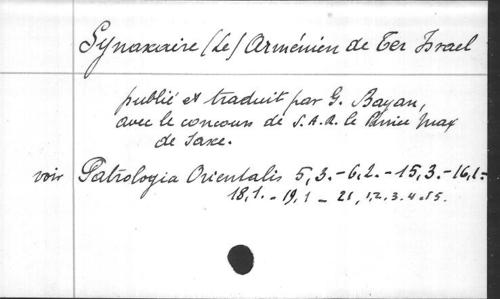 Synaxaire (Le) Arménien de Ter Israel
publié et traduit par G. Bayan,
avec le concours de S.A.R. le Prince Max
de Saxe.
voir Patrologia Orientalis 5,3.-6,2.-15,3.-16,1.-
18,1.-19,1-21,1.2.3.4.